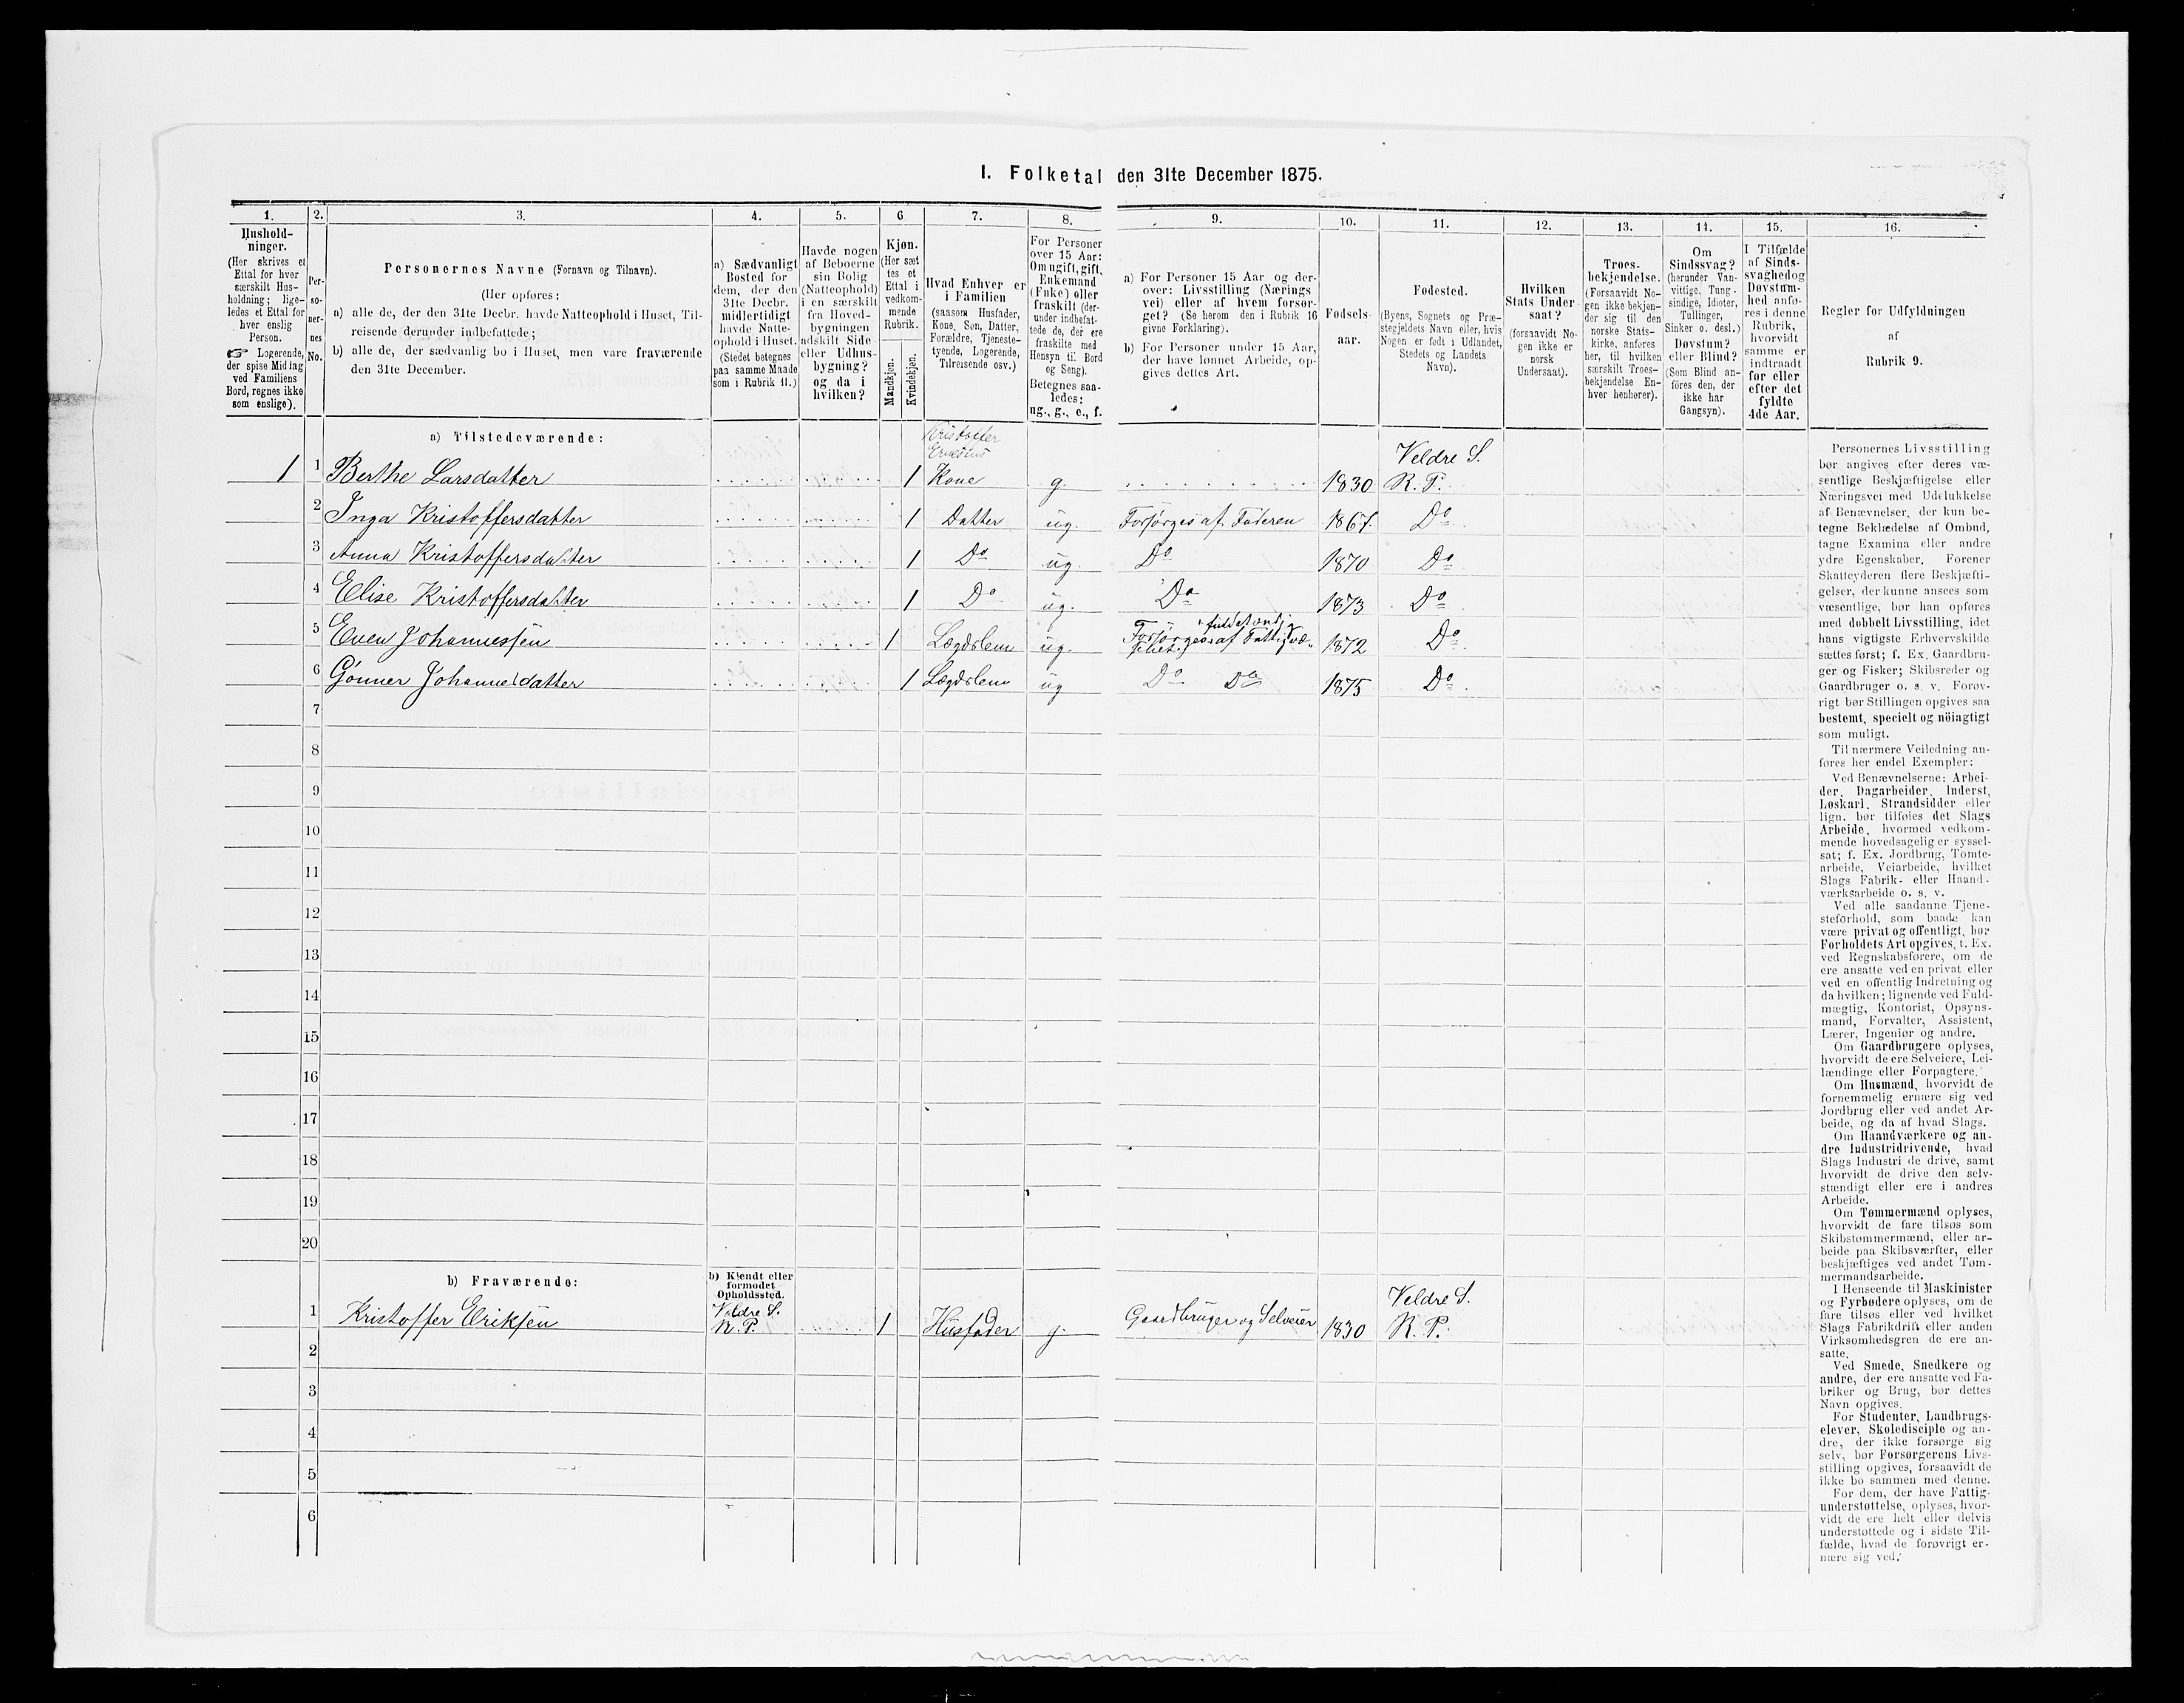 I. Folketal den 31te December 1875.
1. 2. 3. 4. 5. 6 7. 8. 9. 10. 11. 12. 13. 14. 15. 16.
Hushold-
ninger.
(Her skrives et
Ettal for hver
særskilt Hus-
holdning; lige-
ledes et Ettal for
hver enslig
Person.
☞ Logerende,
der spise Middag
ved Familiens
Bord, regnes ikke
som enslige).
Per-
so-
ner-
nes
No.
Personernes Navne (Fornavn og Tilnavn).
(Her opføres:
a) alle de, der den 31te Decbr. havde Natteophold i Huset, Til-
reisende derunder indbefattede;
b) alle de, der sædvanlig bo i Huset, men vare fraværende
den 31te December.
a) Sædvanligt
Bosted for
dem, der den
31te Decbr.
midlertidigt
havde Natte-
ophold i Huset.
(Stedet betegnes
paa samme Maade
som i Rubrik 11.)
Havde nogen
af Beboerne
sin Bolig
(Natteophold)
i en særskilt
fra Hoved-
bygningen
adskilt Side-
eller Udhus-
bygning?
og da i
hvilken?
Kjøn.
(Her sæt
tes et
Ettal i
vedkom-
mende
Rubrik.
Mandkjøn.
Kvindekjøn.
Hvad Enhver er
i Familien
(saasom Husfader,
Kone, Søn, Datter,
Forældre, Tjeneste-
tyende, Logerende,
Tilreisende osv.)
For Personer
over 15 Aar:
Om ugift, gift,
Enkemand
(Enke) eller
fraskilt (der-
under indbefat-
tede de, der ere
fraskilte med
Hensyn til Bord
og Seng).
Betegnes saa-
ledes:
ug., g., e., f.
a) For Personer 15 Aar og der-
over: Livsstilling (Nærings
vei) eller af hvem forsør-
get? (Se herom den i Rubrik 16
givne Forklaring).
b) For Personer under 15 Aar,
der have lønnet Arbeide, op-
gives dettes Art.
Fødsels-
aar.
Fødested.
(Byens, Sognets og Præ-
stegjeldets Navn eller, hvis
Nogen er født i Udlandet,
Stedets og Landets
Navn).
Hvilken
Stats Under-
saat?
(forsaavidt No-
gen ikke er
norsk
Undersaat).
Troes-
bekjendelse.
(Forsaavidt No-
gen ikke bekjen-
der sig til den
norske Stats-
kirke, anføres
her, til hvilken
særskilt Troes-
bekjendelse En-
hver henhører).
Om
Sindssvag?
(herunder Van-
vittige, Tung-
sindige, Idioter,
Tullinger,
Sinker o. desl.)
Døvstum?
eller Blind?
(Som Blind an-
føres den, der
ikke har
Gangsyn).
I Tilfælde
af Sinds-
svaghed og
Døvstum-
hed anfø-
res i denne
Rubrik,
hvorvidt
samme er
indtraadt
før eller
efter det
fyldte
4de Aar.
Regler for Udfyldningen
af
Rubrik 9.
a) Tilstedeværende:
Kristoffer
1 1 Berthe Larsdatter 1 Kone g. 1830 Veldre S.
R. P.
2 Inga Kristoffersdatter 1 Datter ug. Forsørges af Faderen 1867. Do
3 Anna Kristoffersdatter 1 Do ug. Do 1870 Do
4 Elise Kristoffersdatter 1 Do ug. Do 1873 Do
5 Even Johannessen 1 Lægdslem ug. Forsørges fuldstændig af Fattigvæ-
senet. 1872 Do
6 Gunner Johannesdatter 1 Lægdslem ug Do Do 1875 Do
7
8
9
10
11
12
13
14
15
16
17
18
19
20
b) Fraværende:
b) Kjendt eller
formodet
Opholdssted.
1 Kristoffer Eriksen Veldre S.
R. P. 1 Husfader g. Gaardbruger og Selveier 1830 Veldre S.
R. P.
2
3
4
5
6
Personernes Livsstilling
bør angives efter deres væ-
sentlige Beskjæftigelse eller
Næringsvei med Udelukkelse
af Benævnelser, der kun be-
tegne Beklædelse af Ombud,
tagne Examina eller andre
ydre Egenskaber. Forener
Skatteyderen flere Beskjæfti-
gelser, der kunne ansees som
væsentlige, bør han opføres
med dobbelt Livsstilling, idet
hans vigtigste Erhvervskilde
sættes først; f. Ex. Gaardbru-
ger og Fisker; Skibsreder og
Gaardbruger o. s. v. Forøv-
rigt bør Stillingen opgives saa
bestemt, specielt og nöiagtigt
som muligt.
Til nærmere Veiledning an-
føres her endel Exempler:
Ved Benævnelserne: Arbei-
der, Dagarbeider, Inderst,
Løskarl, Strandsidder eller
lign. bør tilføies det Slags
Arbeide, hvormed vedkom-
mende hovedsagelig er syssel-
sat; f. Ex. Jordbrug, Tomte-
arbeide, Veiarbeide, hvilket
Slags Fabrik- eller Haand-
værksarbeide o. s. v.
Ved alle saadanne Tjene-
steforhold, som baade kan
være privat og offentligt, bør
Forholdets Art opgives, t. Ex.
ved Regnskabsførere, om de
ere ansatte ved en privat eller
ved en offentlig Indretning og
da hvilken; lignende ved Fuld-
mægtig, Kontorist, Opsyns-
mand, Forvalter, Assistent,
Lærer, Ingeniør og andre.
Om Gaardbrugere oplyses,
hvorvidt de ere Selveiere, Lei-
lændinge eller Forpagtere.
Om Husmænd, hvorvidt de
fornemmelig ernære sig ved
Jordbrug eller ved andet Ar-
beide, og da af hvad Slags.
Om Haandværkere og an-
dre Industridrivende, hvad
Slags Industri de drive, samt
hvorvidt de drive den selv-
stændigt eller ere i andres
Arbeide.
Om Tømmermænd oplyses,
hvorvidt de fare tilsøs som
Skibstømmermænd, eller ar-
beide paa Skibsværfter, eller
beskjæftiges ved andet Tøm-
mermandsarbeide.
I Henseende til Maskinister
og Fyrbødere oplyses, om de
fare tilsøs eller ved hvilket
Slags Fabrikdrift eller anden
Virksomhedsgren de ere an-
satte.
Ved Smede, Snedkere og
andre, der ere ansatte ved Fa-
briker og Brug, bør dettes
Navn opgives.
For Studenter, Landbrugs-
elever, Skoledisciple og an-
dre, der ikke forsørge sig
selv, bør Forsørgerens Livs-
stilling opgives, forsaavidt de
ikke bo sammen med denne.
For dem, der have Fattig-
understøttelse, oplyses, hvor-
vidt de ere helt eller delvis
understøttede og i sidste Til-
fælde, hvad de forøvrigt er-
nære sig ved.